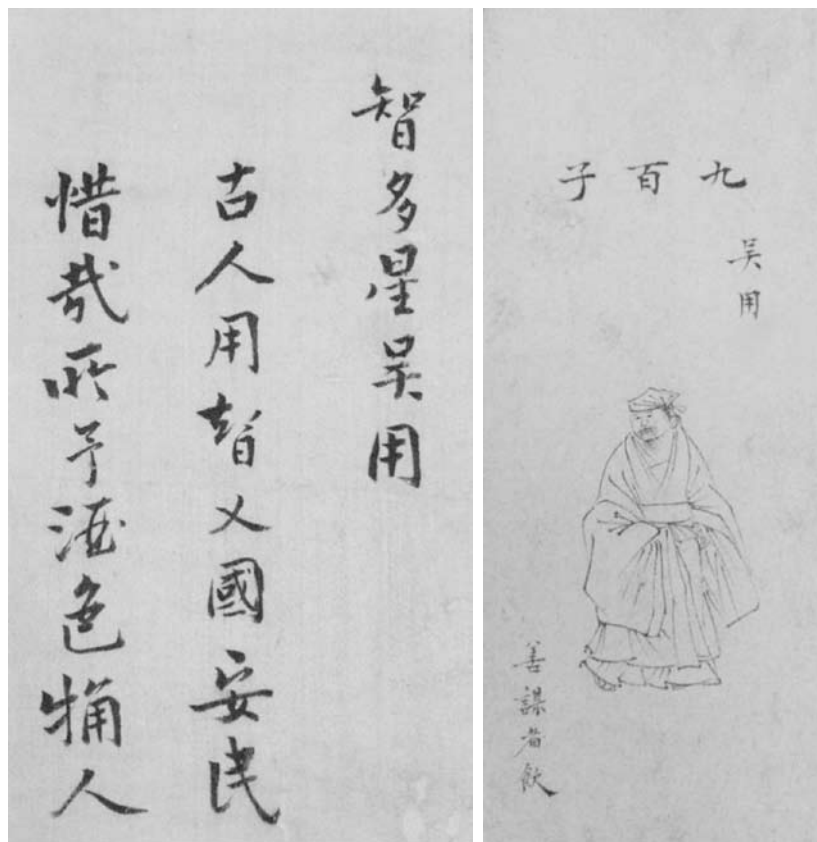 九百子
吴用
善謀者飲
智多星吴用
古人用智乂國安民
惜哉所予酒色觕人